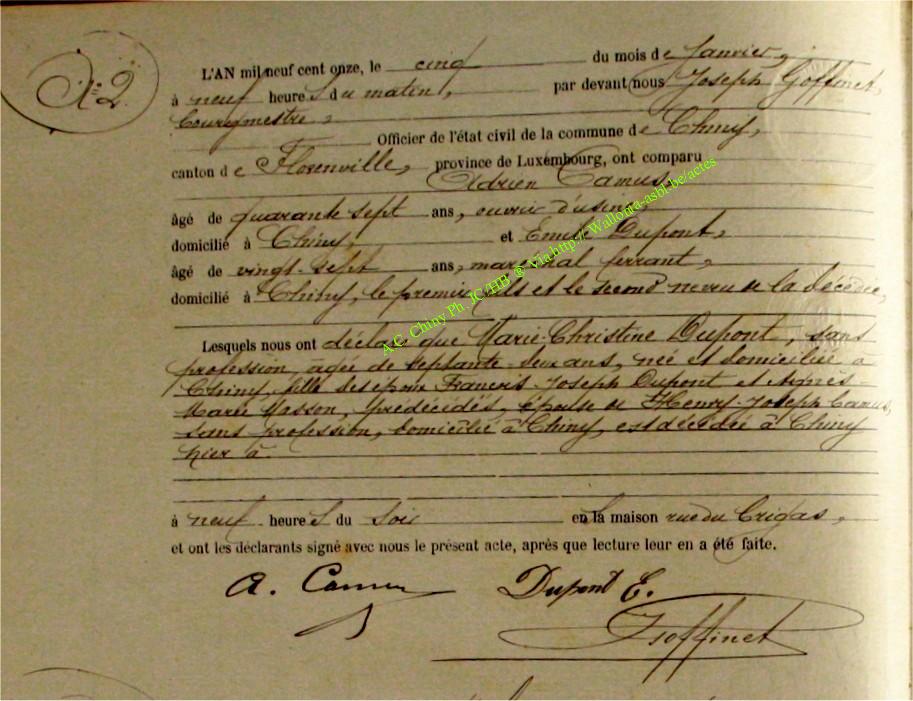 N° 2
L'AN mil neuf cent onze, le cinq du mois de Janvier,
à neuf heures du matin, par devant nous Joseph Goffinet,
bourgmestre,
Officier de l'état civil de la commune de Chiny,
canton de Florenville, province de Luxembourg, ont comparu
Adrien Camus,
âgé de quarante sept ans, ouvrier d'usine,
domicilié à Chiny, et Emile Dupont,
âgé de vingt-sept ans, maréchal ferrant,
domicilié à Chiny, le premier fils et le second neveu de la décédée,
Lesquels nous ont déclaré que Marie-Christine Dupont, sans
profession, âgée de septante-deux ans, née et domiciliée à
Chiny, fille des époux Francois-Joseph Dupont et Agnès-
Marie Masson, prédécédés, épouse de Henry-Joseph Camus,
sans profession, domicilié à Chiny, est décédée à Chiny
hier à
à neuf heures du soir en la maison rue du
et ont les déclarants signé avec nous le présent acte, après que lecture leur en a été faite.
A. Camus Dupont E.
J Goffinet
A.C. Chiny Ph. JC/HB @ Via http:// Wallonia-asbl-be/actes